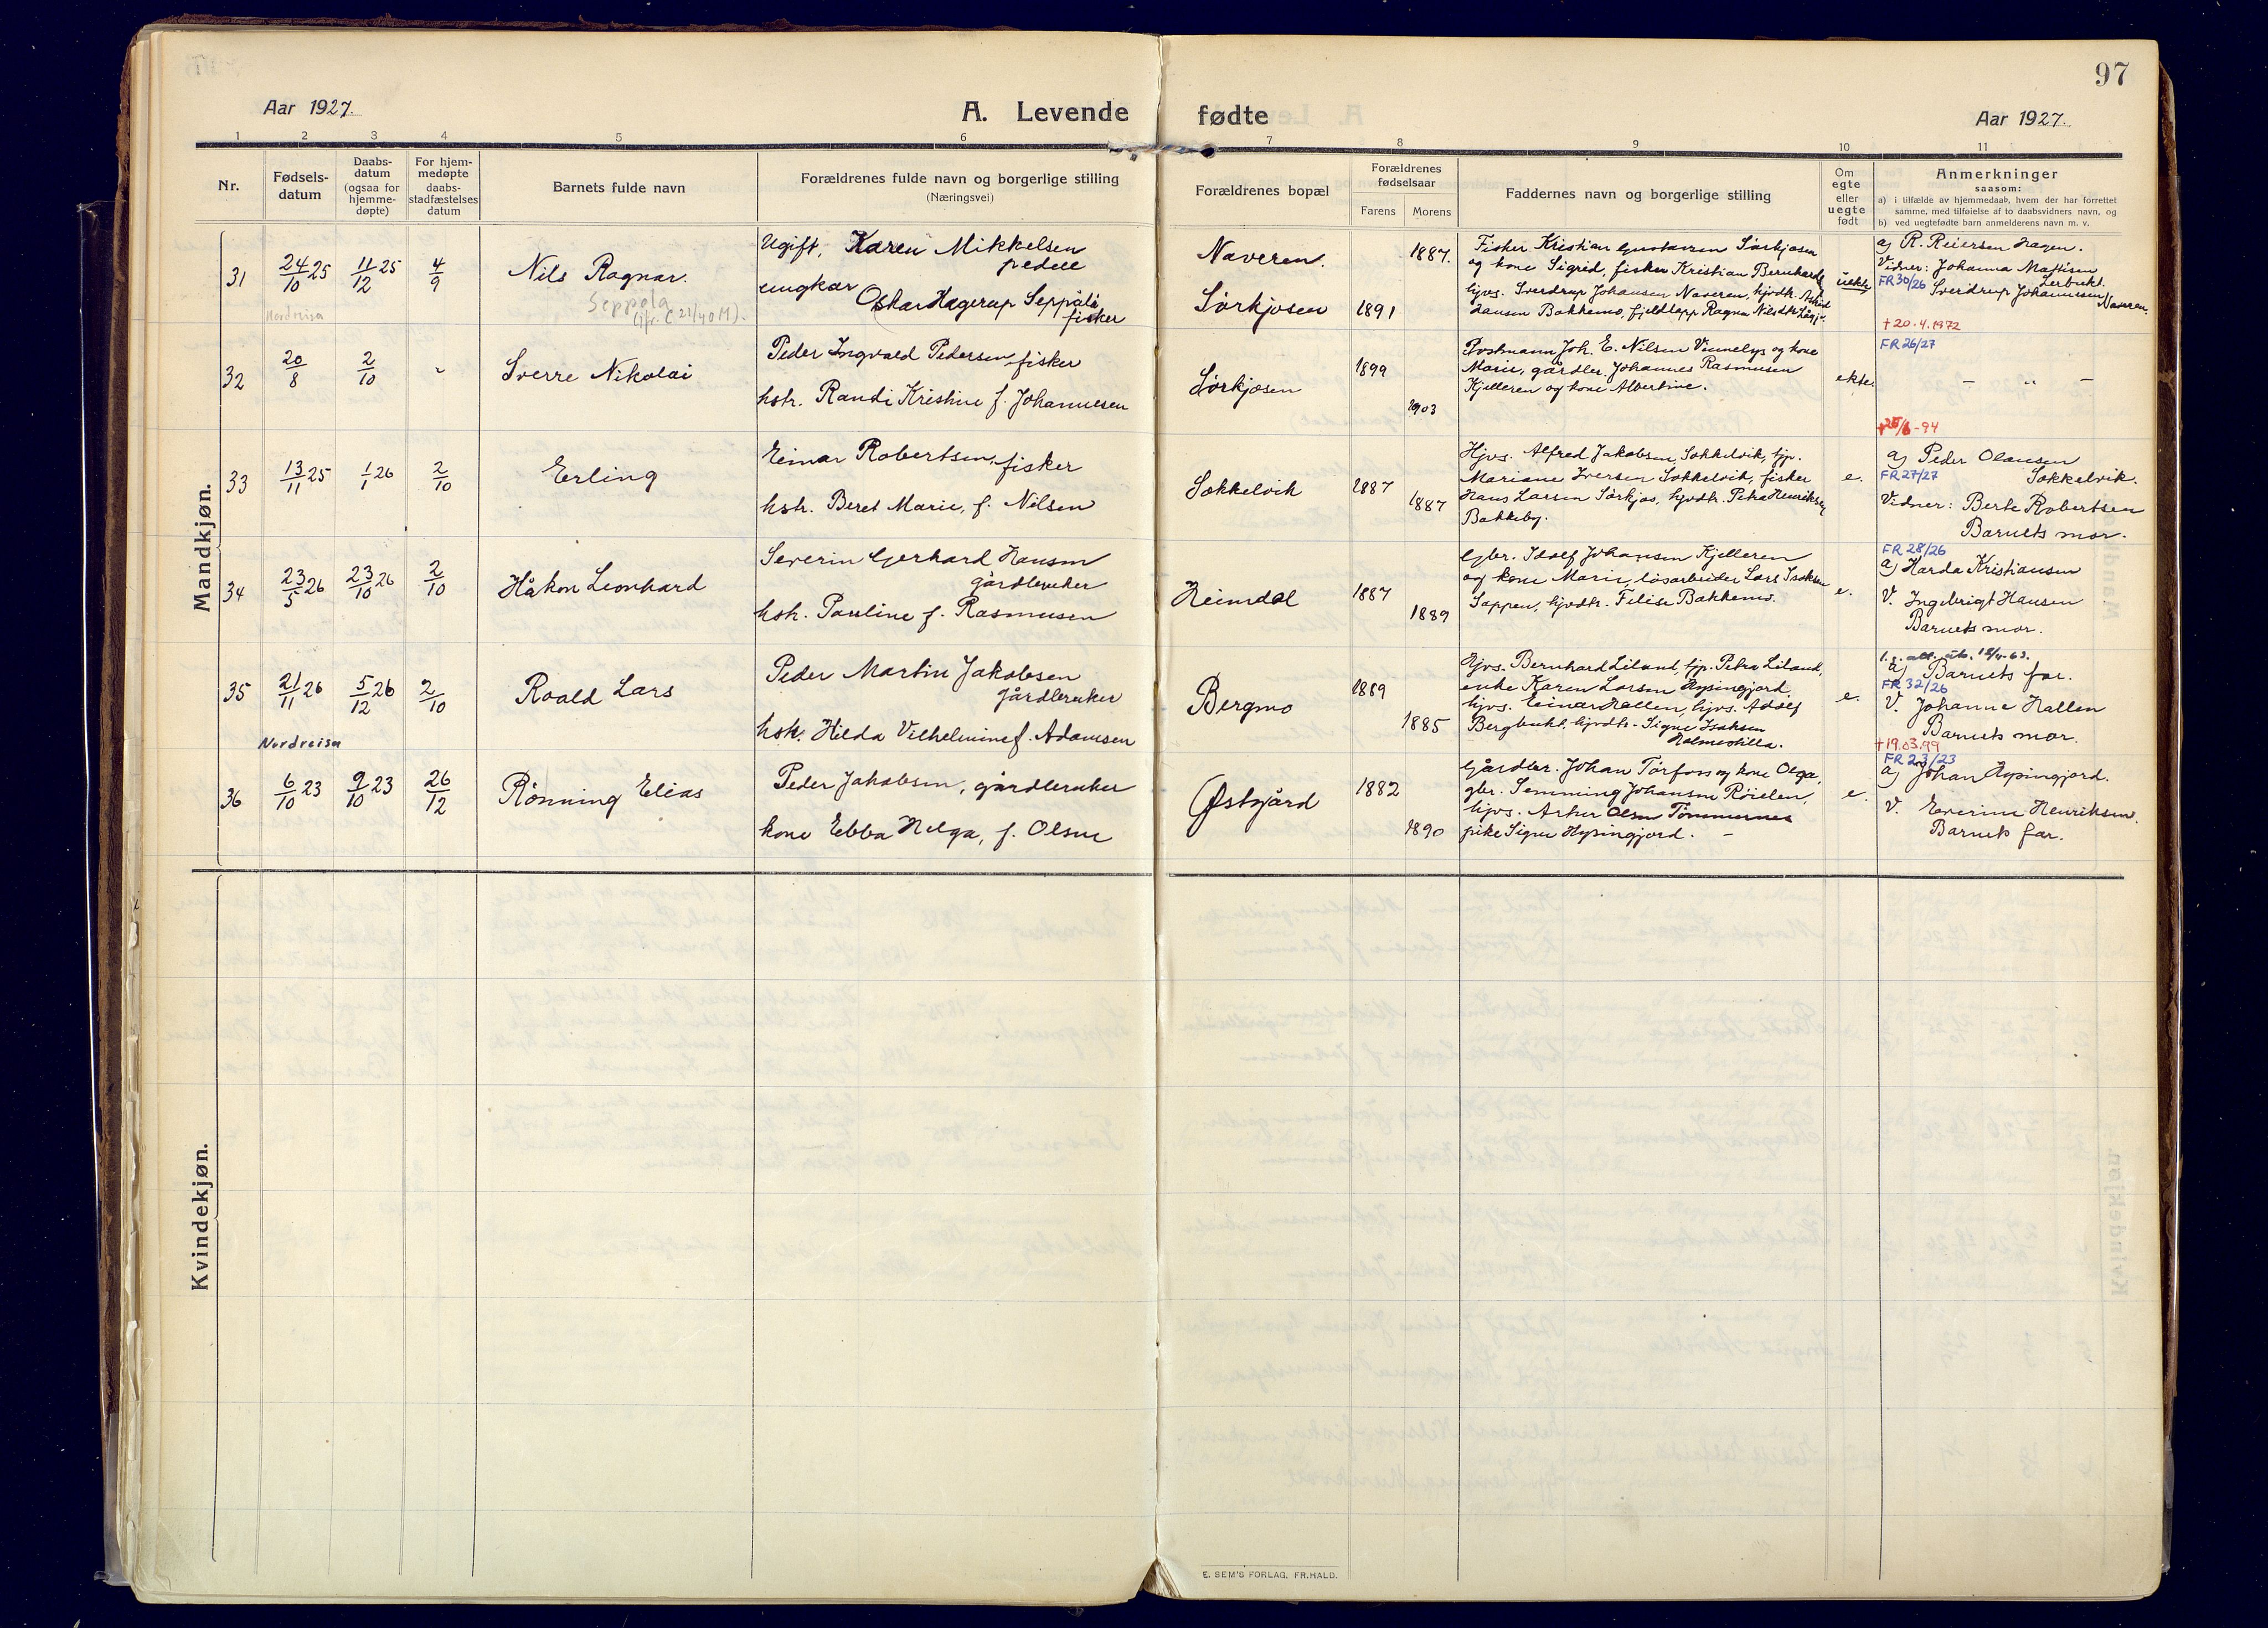 97
Aar 1927.
A. Levende fødte
Aar 1927.
1 2 3 4 5 6 7 8 9 10 11
Nr.
Fødsels-
datum
Daabs-
datum
(ogsaa for
hjemme-
døpte)
For hjem-
medøpte
daabs-
stadfæstelses
datum
Barnets fulde navn
Forældrenes fulde navn og borgerlige stilling
(Næringsvei)
Forældrenes bopæl
Forældrenes
fødselsaar
Farens Morens
Faddernes navn og borgerlige stilling
Om
egte
eller
uegte
født
Anmerkninger
saasom:
a) i tilfælde av hjemmedaab, hvem der har forrettet
samme, med tilføielse av to daabsvidners navn, og
b) ved uegtefødte barn anmelderens navn m. v.
Mandkjøn.
31
24/10 25
Nordreisa
11/12 25
4/9
Nils Ragnar.
Seppola
(jfr. C 21/40 M).
Ugift, Karen Mikkelsen
pedell
ungkar
Oskar Hagerup Seppälä
fisker
Naveren.
Sørkjosen
1887.
1891
Fisker Kristian Gustavsen Sørkjosen
og kone Sigrid, fisker Kristian Bernhards
hjvs. Sverdrup Johansen Naveren, hjvdtr. Astrid
Hansen Bakkemo, fjeldlapp Ragna Nilsdtr
uekte
a) R. Reiersen Hagen.
Vidner: Johanna Mattisen
Lerbukt.
FR 30/26 Sverdrup Johannesen
Naveren.
† 20.4.1972
32
20/8
2/10
Sverre Nikolai
Peder Ingvald Pedersen, fisker
hstr. Randi Kristine f. Johannesen
Sørkjosen
1899
1903
Postmann Joh. E. Nilsen Vinnelys og kone
Marie, gårdbr. Johannes Rasmusen
Kjelleren og kone Albertine.
ekte.
FR 26/27
– „ –
† 25/6-94
33
13/11 25
1/1 26
2/10
Erling
Einar Robertsen, fisker
hstr. Beret Marie, f. Nilsen
Sokkelvik
1887
1887
Hjvs. Alfred Jakobsen, Sokkelvik, hjp.
Mariane Iversen Sokkelvik, fisker
Hans Larsen Sørkjos, hjvdtr. Petra Henriksen
Bakkeby.
e.
a) Peder Olausen
FR 27/27 Sokkelvik.
Vidner: Berte Robertsen
Barnets mor.
34
23/5 26
23/10 26
2/10
Håkon Leonhard
Severin Gerhard Hansen
gårdbruker
hstr. Pauline f. Rasmusen
Heimdal
1887
1889
Gbr. Idolf Johansen Kjelleren
og kone Marie, løsarbeider Lars Isaksen
Sappen, hjvdtr. Felise Bakkemo.
e.
FR 28/26
a) Harda Kristiansen
V. Ingebrigt Hansen
Barnets mor.
35
21/11 26
5/12 26
2/10
Roald Lars
Peder Martin Jakobsen
Gårdbruker
hstr. Hilda Vilhelmine f. Adamsen
Bergmo
1889
1885
Hjvs. Bernhard Liland, hjp. Petra Liland,
enke Karen Larsen Hysingjord,
hjvs. Einar Hallen, hjvs. Adolf
Bergbukt, hjvdtr. Signe Isaksen
Holmestilla.
e.
a) Barnets far.
FR 32/26
V. Johanne Hallen
Barnets mor.
† 19.03.99
Nordreisa
36
6/10 23
9/10 23
26/12
Rønning Elias
Peder Jakobsen, gårdbruker
kone Ebba Helga, f. Olsen
Østgård
1882
1890
Gårdbr. Johan Torfoss og kone Olga,
gbr. Semming Johansen Røielen,
hjvs. Artur Olsen Tømmernes
pike Signe Hysingjord. –
e.
FR 23/23
a) Johan Hysingjord.
V. Severine Henriksen.
Barnets far.
Kvindekjøn.
E. SEM'S FORLAG, FR.HALD.